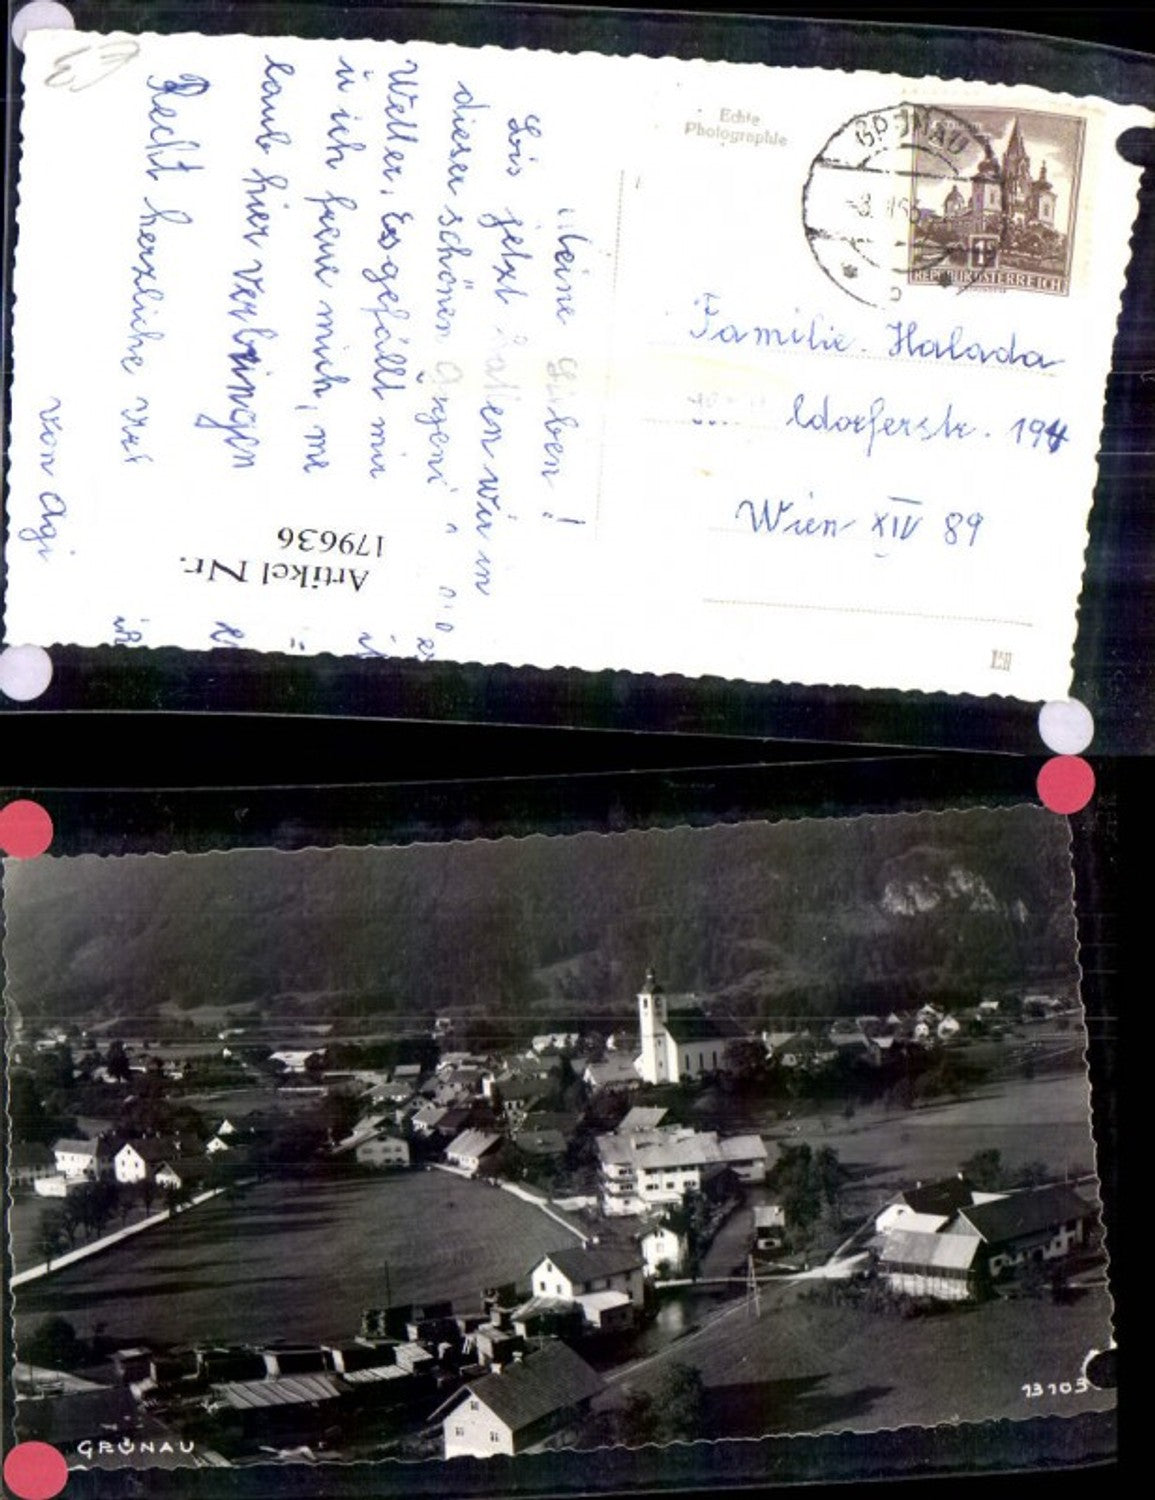 Echte
Photographie
GRÜNAU
REPUBLIK ÖSTERREICH
Familie Halada
ldorferstr. 194
Wien XIV 89
Meine Lieben!
Bis jetzt hatten wir in
dieser schönen Gegend
Wetter. Es gefällt mir
u ich freue mich, me
laub hier verbringen
Recht herzliche
von Agi
Artikel Nr.
179636
13103
GRÜNAU